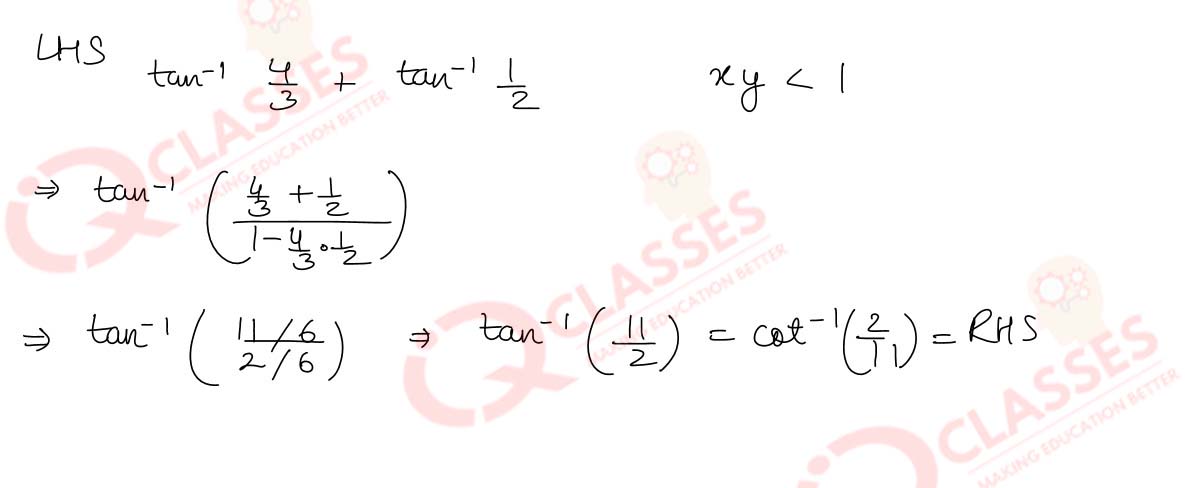 LHS tan⁻¹ 4/3 + tan⁻¹ 1/2 xy < 1
⇒ tan⁻¹ ( (4/3 + 1/2) / (1 - 4/3 · 1/2) )
⇒ tan⁻¹ ( (11/6) / (2/6) ) ⇒ tan⁻¹ (11/2) = cot⁻¹ (2/11) = RHS
IQ CLASSES
MAKING EDUCATION BETTER
IQ CLASSES
MAKING EDUCATION BETTER
IQ CLASSES
MAKING EDUCATION BETTER